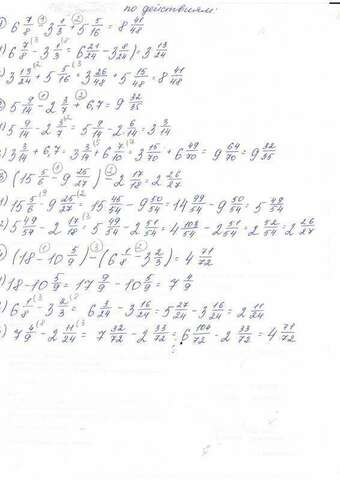 по действиям:
1) 6 7/8 - 3 1/3 + 5 5/16 = 8 41/48
1) 6 7/8 - 3 1/3 = 6 21/24 - 3 8/24 = 3 13/24
2) 3 13/24 + 5 5/16 = 3 26/48 + 5 15/48 = 8 41/48
2) 5 9/14 - 2 3/7 + 6,7 = 9 32/35
1) 5 9/14 - 2 3/7 = 5 9/14 - 2 6/14 = 3 3/14
2) 3 3/14 + 6,7 = 3 3/14 + 6 7/10 = 3 15/70 + 6 49/70 = 9 64/70 = 9 32/35
3) (15 5/6 - 9 25/27) - 2 17/18 = 2 26/27
1) 15 5/6 - 9 25/27 = 15 45/54 - 9 50/54 = 14 99/54 - 9 50/54 = 5 49/54
2) 5 49/54 - 2 17/18 = 5 49/54 - 2 51/54 = 4 103/54 - 2 51/54 = 2 52/54 = 2 26/27
4) (18 - 10 5/9) - (6 1/8 - 3 2/3) = 4 71/72
1) 18 - 10 5/9 = 17 9/9 - 10 5/9 = 7 4/9
2) 6 1/8 - 3 2/3 = 6 3/24 - 3 16/24 = 5 27/24 - 3 16/24 = 2 11/24
3) 7 4/9 - 2 11/24 = 7 32/72 - 2 33/72 = 6 104/72 - 2 33/72 = 4 71/72